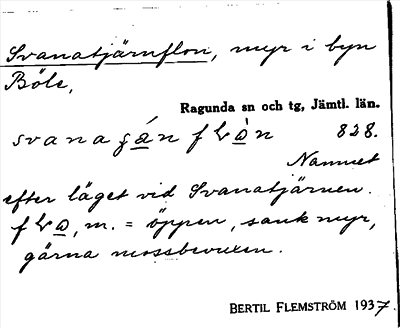 Svanatjärnflon, myr i byn
Böle,
Ragunda sn och tg, Jämtl. län.
828.
Namnet
efter läget vid Svanatjärnen.
m. = öppen, sank myr,
gärna mossbevuxen.
BERTIL FLEMSTRÖM 1937.